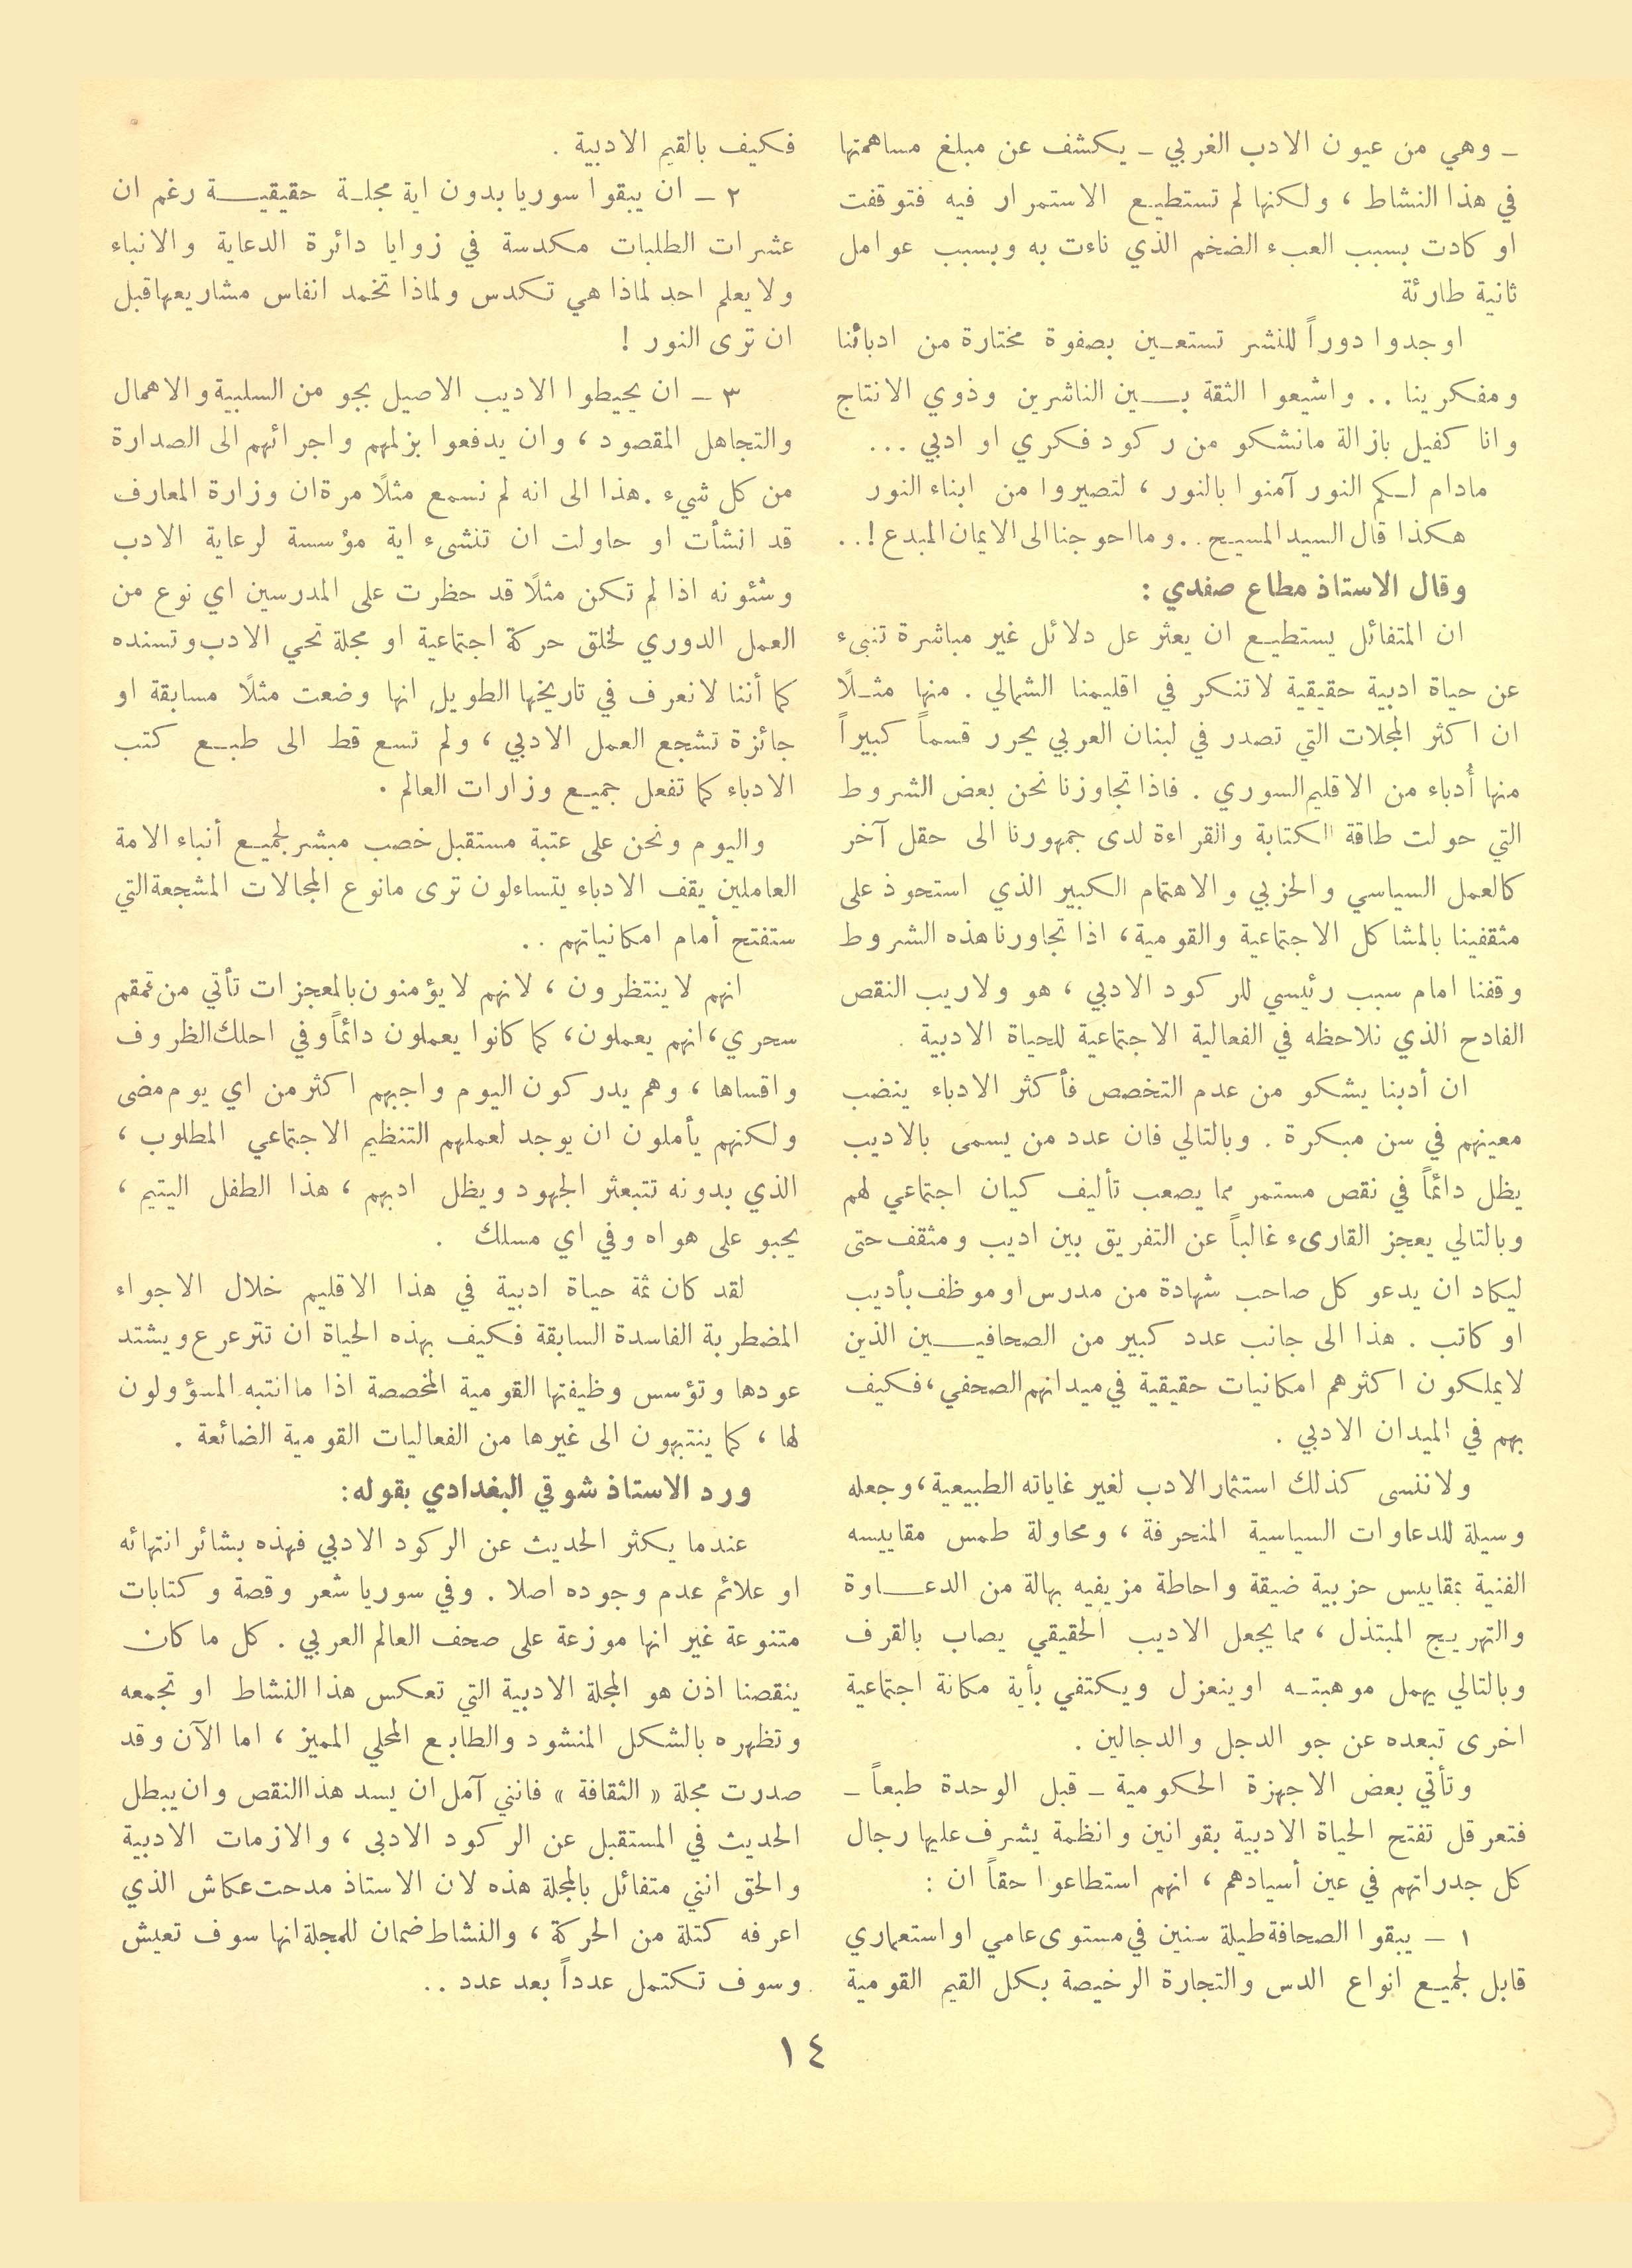 ـ وهي من عيون الادب الغربي ـ يكشف عن مبلغ مساهمتها
في هذا النشاط ، ولكنها لم تستطيع الاستمرار فيه فتوقفت
او كادت بسبب العبء الضخم الذي ناءت به وبسبب عوامل
ثانية طارئة
اوجدوا دوراً للنشر تستعين بصفوة مختارة من ادبائنا
ومفكرينا .. واشيعوا الثقة بين الناشرين وذوي الانتاج
وانا كفيل بازالة مانشكو من ركود فكري او ادبي ...
مادام لكم النور آمنوا بالنور ، لتصيروا من ابناء النور
هكذا قال السيد المسيح .. وما احوجنا الى الايمان المبدع !..
وقال الاستاذ مطاع صفدي :
ان المتفائل يستطيع ان يعثر عل دلائل غير مباشرة تنبىء
عن حياة ادبية حقيقية لاتنكر في اقليمنا الشمالي . منها مثلاً
ان اكثر المجلات التي تصدر في لبنان العربي يحرر قسماً كبيراً
منها أُدباء من الاقليم السوري . فاذا تجاوزنا نحن بعض الشروط
التي حولت طاقة الكتابة والقراءة لدى جمهورنا الى حقل آخر
كالعمل السياسي والحزبي والاهتمام الكبير الذي استحوذ على
مثقفينا بالمشاكل الاجتماعية والقومية، اذا تجاورنا هذه الشروط
وقفنا امام سبب رئيسي للركود الادبي ، هو ولاريب النقص
الفادح الذي نلاحظه في الفعالية الاجتماعية للحياة الادبية .
ان أدبنا يشكو من عدم التخصص فأكثر الادباء ينضب
معينهم في سن مبكرة . وبالتالي فان عدد من يسمى بالاديب
يظل دائماً في نقص مستمر مما يصعب تأليف كيان اجتماعي لهم
وبالتالي يعجز القارىء غالباً عن التفريق بين اديب ومثقف حتى
ليكاد ان يدعو كل صاحب شهادة من مدرس او موظف بأديب
او كاتب . هذا الى جانب عدد كبير من الصحافيين الذين
لايملكون اكثرهم امكانيات حقيقية في ميدانهم الصحفي ، فكيف
بهم في الميدان الادبي .
ولاننسى كذلك استثمار الادب لغير غاياته الطبيعية، وجعله
وسيلة للدعاوات السياسية المنحرفة ، ومحاولة طمس مقاييسه
الفنية بمقاييس حزبية ضيقة واحاطة مزيفيه بهالة من الدعاوة
والتهريج المبتذل ، مما يجعل الاديب الحقيقي يصاب بالقرف
وبالتالي يهمل موهبته اوينعزل ويكتفي بأية مكانة اجتماعية
اخرى تبعده عن جو الدجل والدجالين .
وتأتي بعض الاجهزة الحكومية ـ قبل الوحدة طبعاً ـ
فتعرقل تفتح الحياة الادبية بقوانين وانظمة يشرف عليها رجال
كل جدراتهم في عين أسيادهم ، انهم استطاعوا حقاً ان :
١ ـ يبقوا الصحافة طيلة سنين في مستوى عامي او استعماري
قابل لجميع انواع الدس والتجارة الرخيصة بكل القيم القومية
فكيف بالقيم الادبية .
٢ ـ ان يبقوا سوريا بدون اية مجلة حقيقية رغم ان
عشرات الطلبات مكدسة في زوايا دائرة الدعاية والانباء
ولا يعلم احد لماذا هي تكدس ولماذا تخمد انفاس مشاريعها قبل
ان ترى النور !
٣ ـ ان يحيطوا الاديب الاصيل بجو من السلبية والاهمال
والتجاهل المقصود ، وان يدفعوا بزلمهم واجرائهم الى الصدارة
من كل شيء . هذا الى انه لم نسمع مثلاً مرة ان وزارة المعارف
قد انشأت او حاولت ان تنشىء اية مؤسسة لرعاية الادب
وشئونه اذا لم تكن مثلاً قد حظرت على المدرسين اي نوع من
العمل الدوري لخلق حركة اجتماعية او مجلة تحي الادب وتسنده
كما أننا لانعرف في تاريخها الطويل انها وضعت مثلاً مسابقة او
جائزة تشجع العمل الادبي ، ولم تسع قط الى طبع كتب
الادباء كما تفعل جميع وزارات العالم .
واليوم ونحن على عتبة مستقبل خصب مبشر لجميع أنباء الامة
العاملين يقف الادباء يتساءلون ترى مانوع المجالات المشجعة التي
ستفتح أمام امكانياتهم ..
انهم لاينتظرون ، لانهم لايؤمنون بالمعجزات تأتي من قمقم
سحري ، انهم يعملون ، كما كانوا يعملون دائماً وفي احلك الظروف
واقساها ، وهم يدركون اليوم واجبهم اكثر من اي يوم مضى
ولكنهم يأملون ان يوجد لعملهم التنظيم الاجتماعي المطلوب ،
الذي بدونه تتبعثر الجهود ويظل ادبهم ، هذا الطفل اليتيم ،
يحبو على هواه وفي اي مسلك .
لقد كان ثمة حياة ادبية في هذا الاقليم خلال الاجواء
المضطربة الفاسدة السابقة فكيف بهذه الحياة ان تترعرع ويشتد
عودها وتؤسس وظيفتها القومية المخصصة اذا ما انتبه المسؤولون
لها ، كما ينتبهون الى غيرها من الفعاليات القومية الضائعة .
ورد الاستاذ شوقي البغدادي بقوله:
عندما يكثر الحديث عن الركود الادبي فهذه بشائر انتهائه
او علائم عدم وجوده اصلا . وفي سوريا شعر وقصة وكتابات
متنوعة غير انها موزعة على صحف العالم العربي . كل ما كان
ينقصنا اذن هو المجلة الادبية التي تعكس هذا النشاط او تجمعه
وتظهره بالشكل المنشود والطابع المحلي المميز ، اما الآن وقد
صدرت مجلة « الثقافة » فانني آمل ان يسد هذا النقص وان يبطل
الحديث في المستقبل عن الركود الادبى ، والازمات الادبية
والحق انني متفائل بالمجلة هذه لان الاستاذ مدحت عكاش الذي
اعرفه كتلة من الحركة ، والنشاط ضمان للمجلة انها سوف تعيش
وسوف تكتمل عدداً بعد عدد ..
١٤